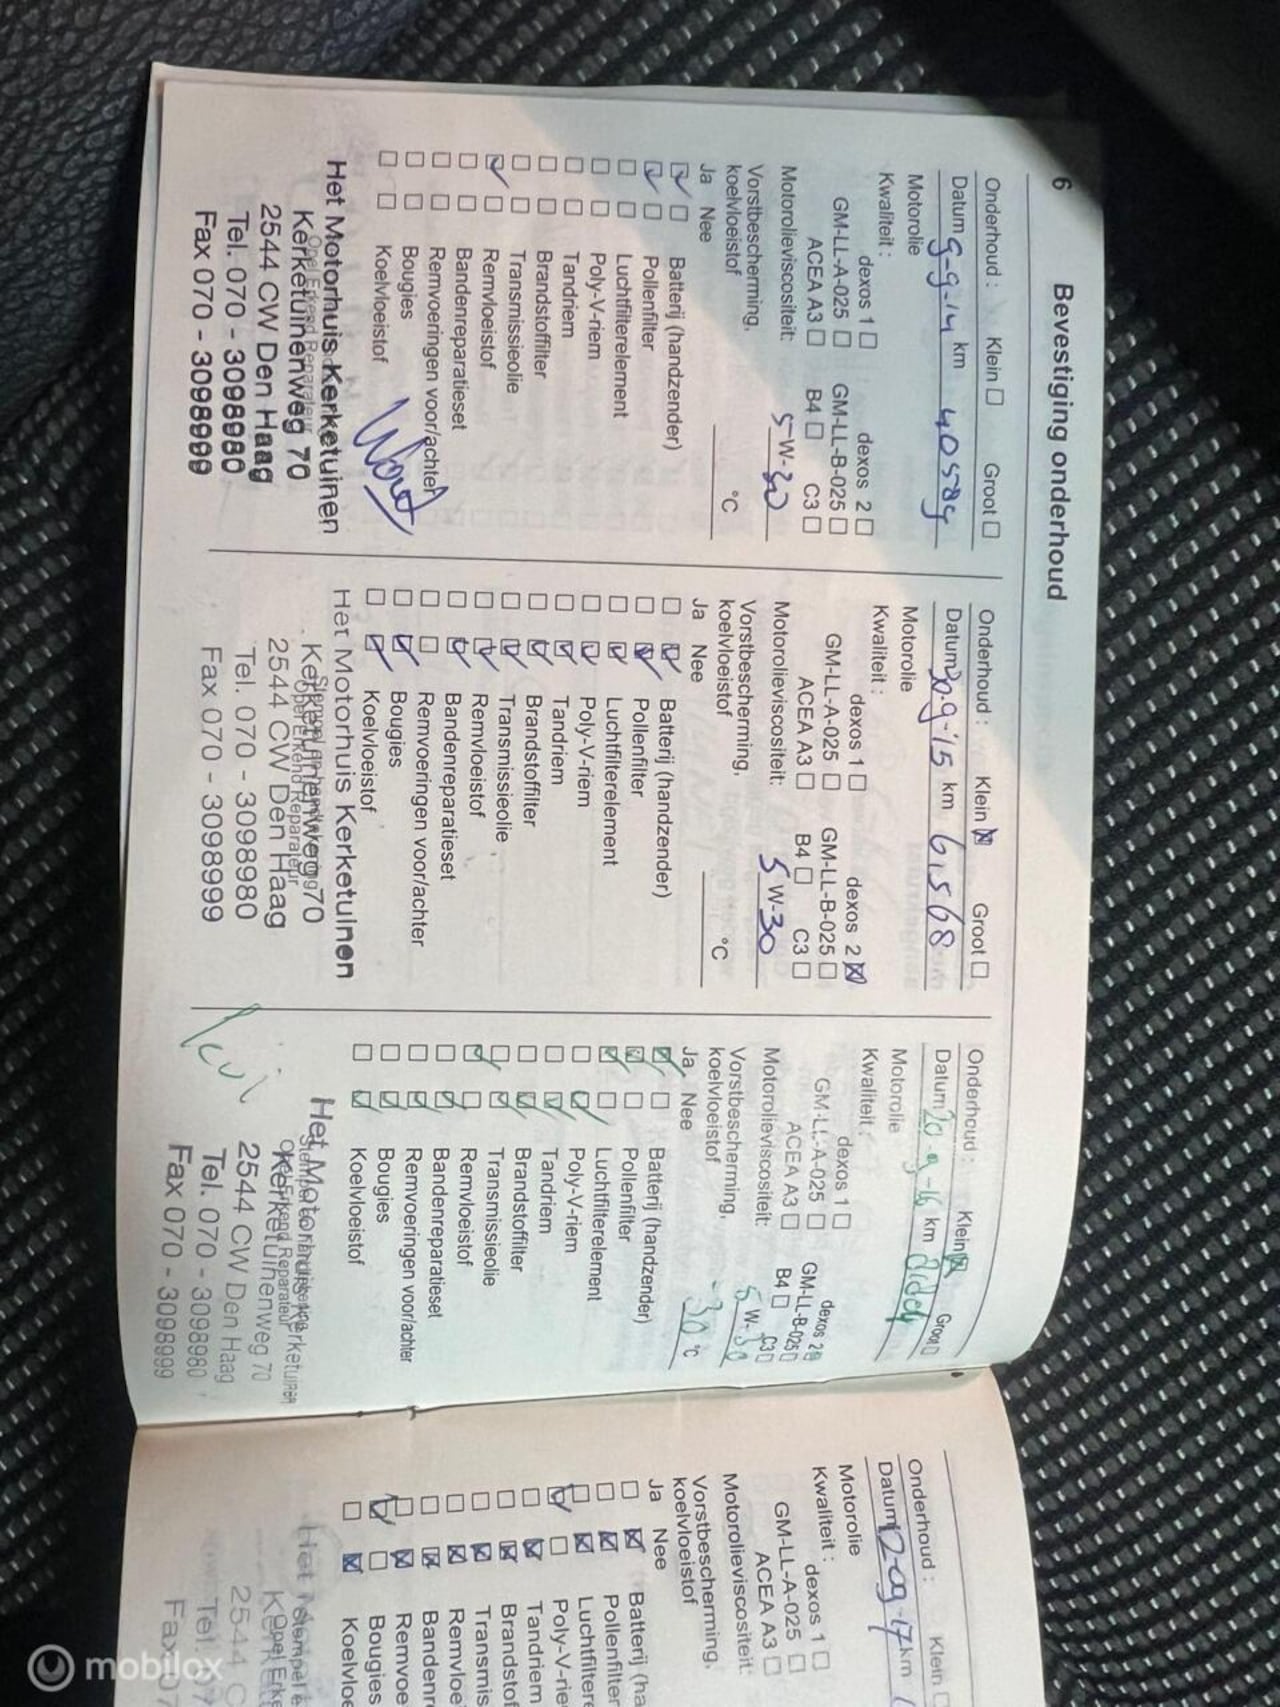 6 Bevestiging onderhoud
Onderhoud : Klein Groot
Datum 9-9-14 km 40589
Motorolie
Kwaliteit : dexos 1 dexos 2
GM-LL-A-025 GM-LL-B-025
ACEA A3 B4 C3
Motorolieviscositeit: 5 W-30
Vorstbescherming,
koelvloeistof °C
Ja Nee
Batterij (handzender)
Pollenfilter
Luchtfilterelement
Poly-V-riem
Tandriem
Brandstoffilter
Transmissieolie
Remvloeistof
Bandenreparatieset
Remvoeringen voor/achter
Bougies
Koelvloeistof
Het Motorhuis Kerketuinen
Opel Erkend Reparateur
Kerketuinenweg 70
2544 CW Den Haag
Tel. 070 - 3098980
Fax 070 - 3098999
Onderhoud : Klein Groot
Datum 30-9-'15 km 61568
Motorolie
Kwaliteit : dexos 1 dexos 2
GM-LL-A-025 GM-LL-B-025
ACEA A3 B4 C3
Motorolieviscositeit: 5 W-30
Vorstbescherming,
koelvloeistof °C
Ja Nee
Batterij (handzender)
Pollenfilter
Luchtfilterelement
Poly-V-riem
Tandriem
Brandstoffilter
Transmissieolie
Remvloeistof
Bandenreparatieset
Remvoeringen voor/achter
Bougies
Koelvloeistof
Het Motorhuis Kerketuinen
Kerketuinenweg 70
Opel Erkend Reparateur
2544 CW Den Haag
Tel. 070 - 3098980
Fax 070 - 3098999
Onderhoud : Klein Groot
Datum 20-9-16 km
Motorolie
Kwaliteit : dexos 1 dexos 2
GM-LL-A-025 GM-LL-B-025
ACEA A3 B4 C3
Motorolieviscositeit: 5 W-30
Vorstbescherming,
koelvloeistof -30 °C
Ja Nee
Batterij (handzender)
Pollenfilter
Luchtfilterelement
Poly-V-riem
Tandriem
Brandstoffilter
Transmissieolie
Remvloeistof
Bandenreparatieset
Remvoeringen voor/achter
Bougies
Koelvloeistof
Het
Kerketuinenweg 70
Opel Erkend Reparateur
2544 CW Den Haag
Tel. 070 - 3098980
Fax 070 - 3098999
Onderhoud : Klein
Datum 12-09-17 km
Motorolie
Kwaliteit : dexos 1
GM-LL-A-025
ACEA A3
Motorolieviscositeit:
Vorstbescherming,
koelvloeistof
Ja Nee
Batterij (ha
Pollenfilter
Luchtfiltere
Poly-V-rie
Tandriem
Brandstof
Transmis
Remvloe
Bandenr
Remvoe
Bougies
Koelvloe
Het
Opel Erke
2544 C
Tel. 07
Fax 07
mobilox